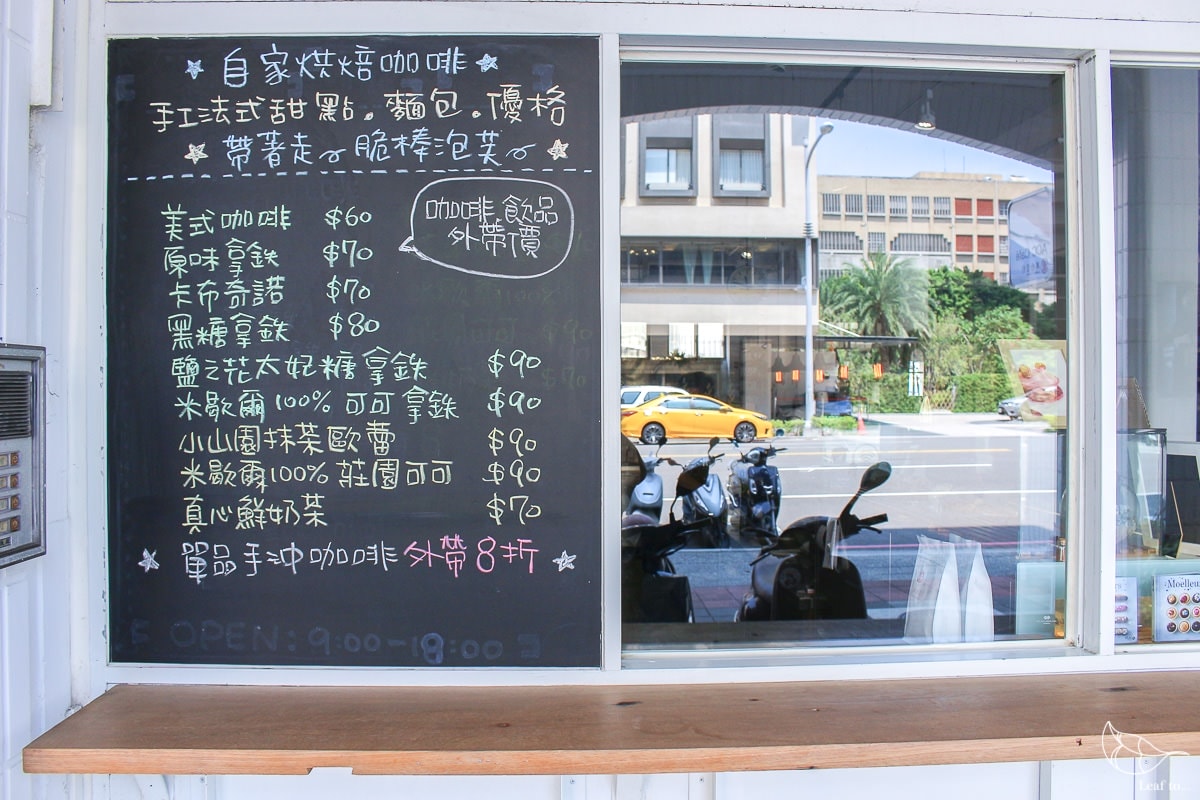 自家烘焙咖啡
手工法式甜點。麵包。優格
帶著走~脆棒泡芙~
咖啡.飲品
外帶價
美式咖啡 $60
原味拿鉄 $70
卡布奇諾 $70
黑糖拿鉄 $80
鹽之花太妃糖拿鉄 $90
米歇爾100%可可拿鉄 $90
小山園抹茶歐蕾 $90
米歇爾100%莊園可可 $90
真心鮮奶茶 $70
單品手沖咖啡 外帶8折
OPEN:9:00-18:00
Moelleux
Leaf to